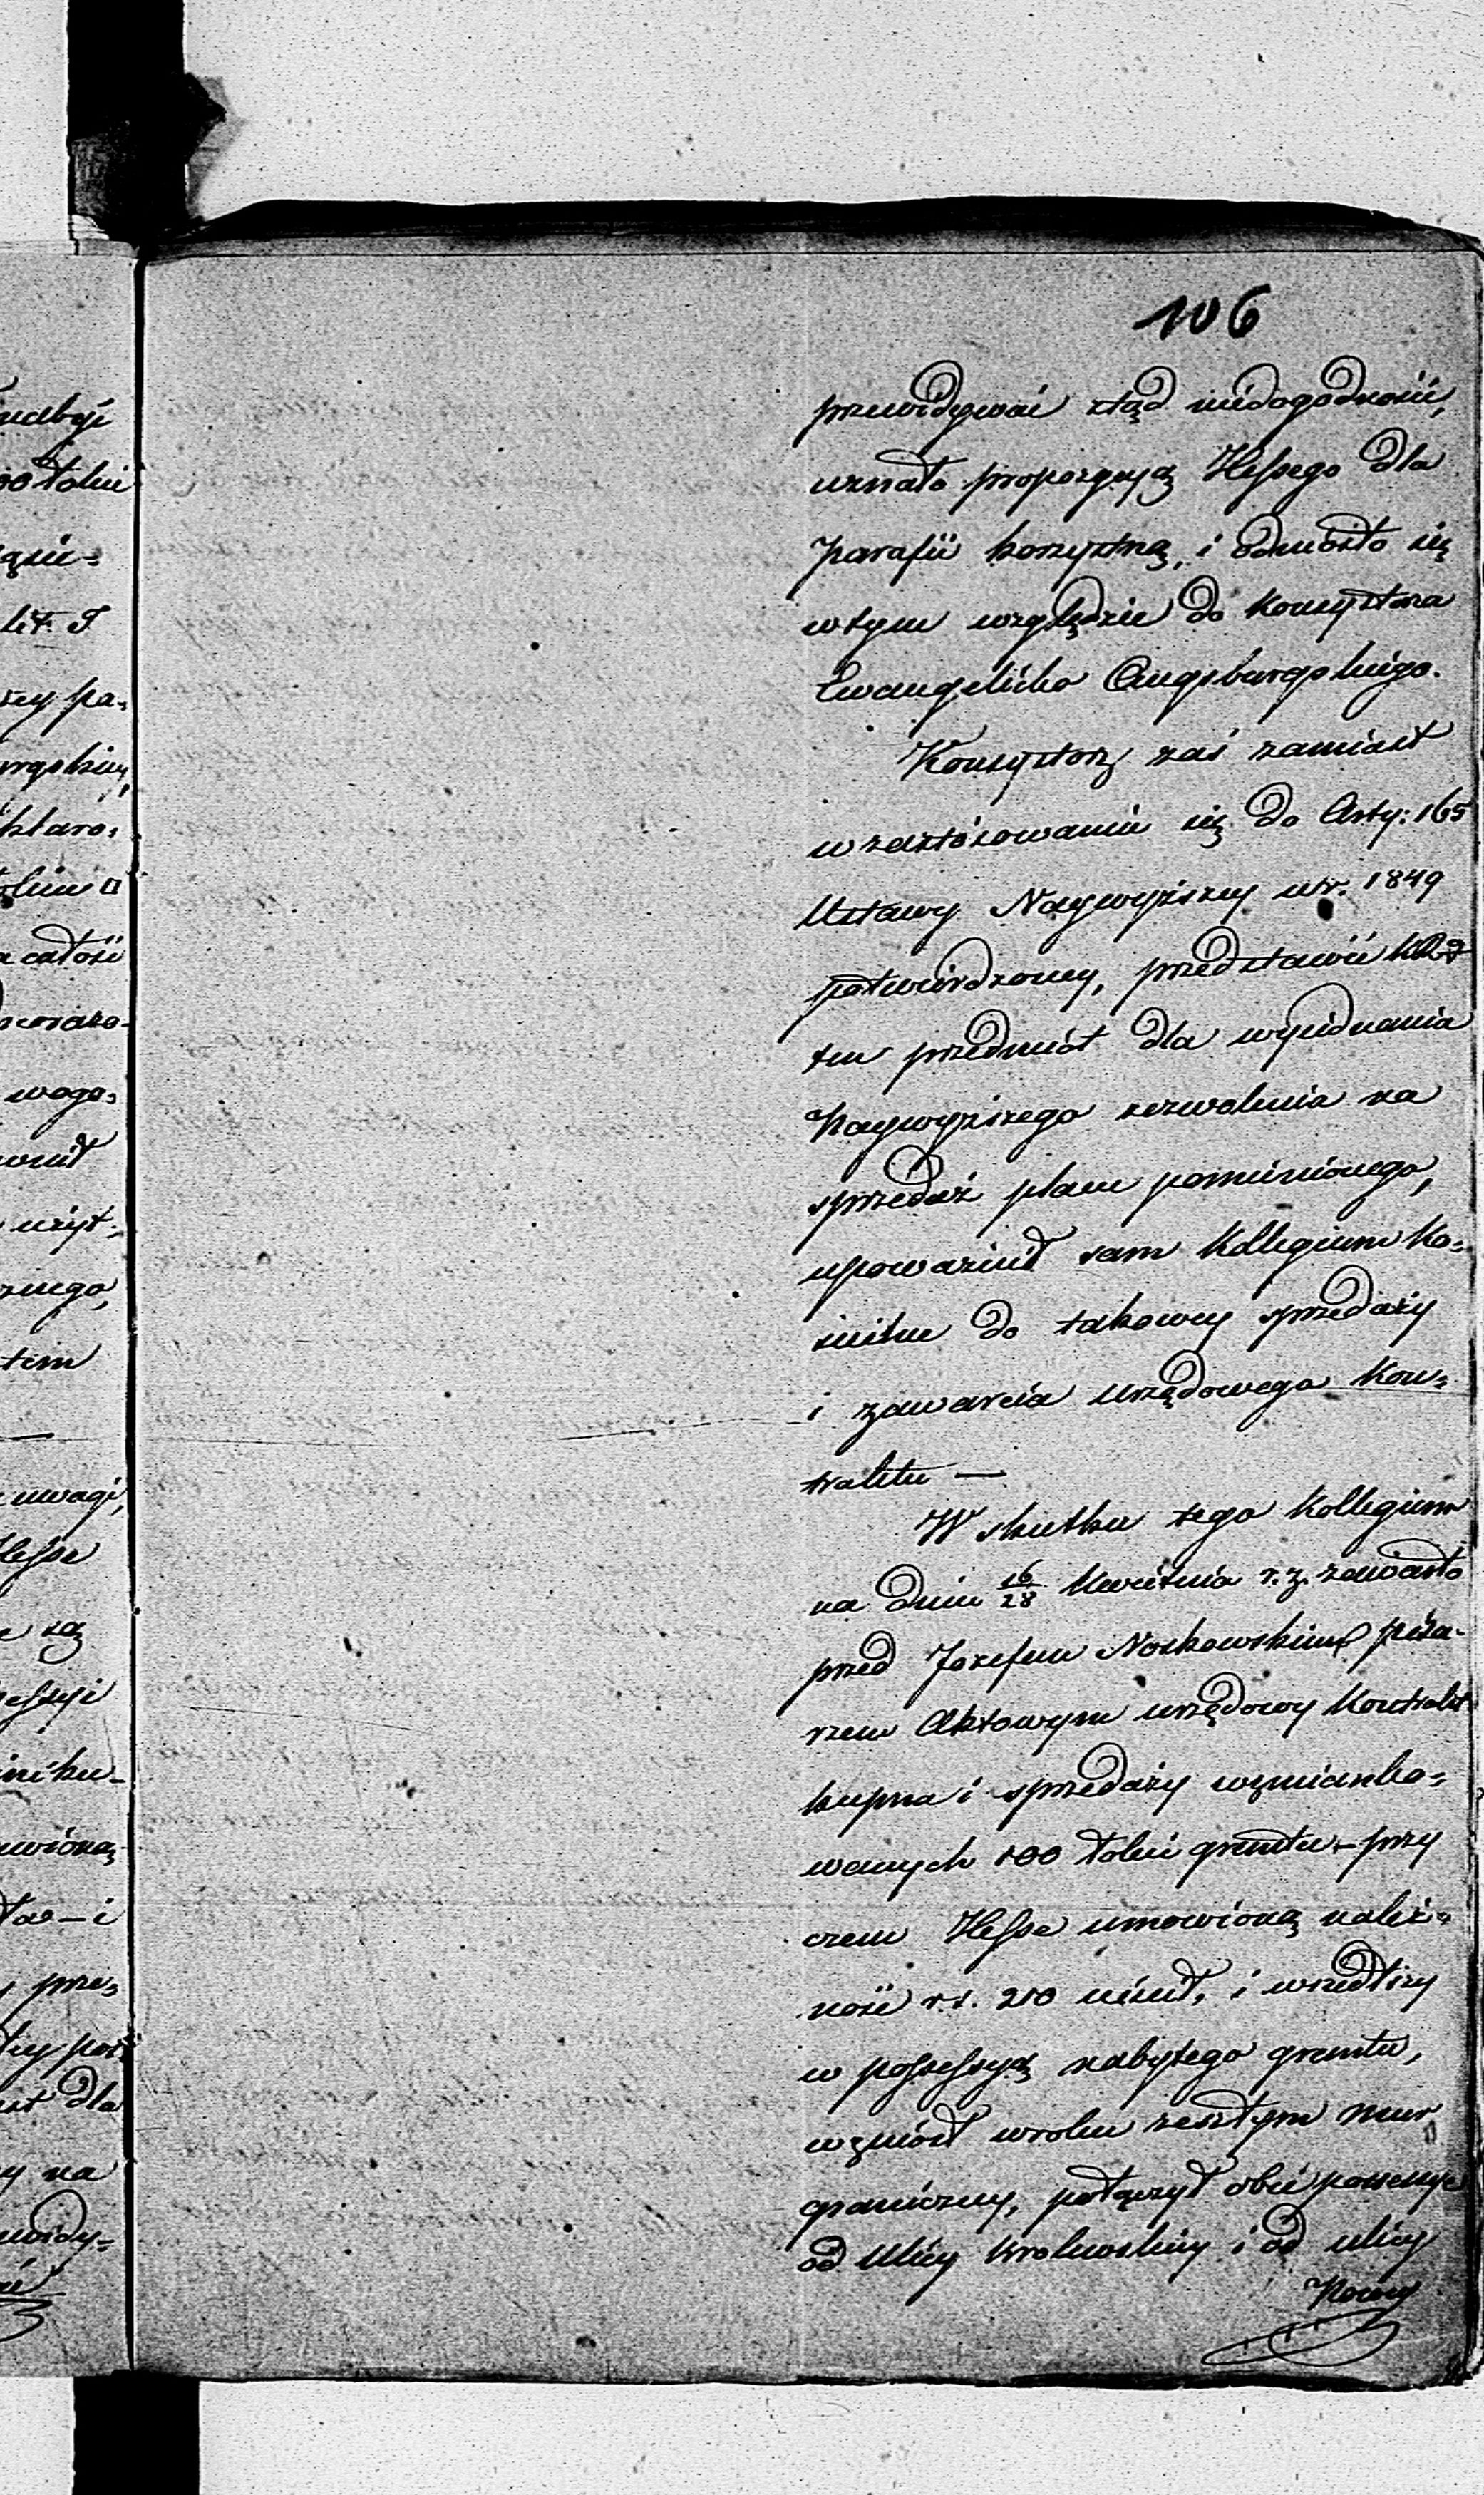 106
przewidywać ztąd niedogodności,
uznało propozycyą Hessego dla
parafii korzystną, i odniosło się
w tym względzie do Konsystorza
Ewangelicko Augsburgskiego.
Konsystorz zaś zamiast
w zastósowaniu się do Arty: 165
Ustawy Naywyższey w r. 1849
potwierdzoney, przedstawić
ten przedmiot dla wyiednania
Naywyższego zezwolenia na
sprzedaż placu pomienionego,
upoważnił sam Kollegium Ko=
ścielne do takowey sprzedaży
i zawarcia urzędowego Kon=
traktu —
W skutku tego Kollegium
na dniu 16/28 Kwietnia r. z. zawarło
przed Jozefem Noskowskim pisa-
rzem Aktowym urzędowy Kontrakt
kupna i sprzedaży wzmianko=
wanych 100 łokci gruntu – przy
czem Hesse umowioną należ=
ność r.s. 210 uiścił, i wszedłszy
w possessyą nabytego gruntu,
wzniósł w roku zeszłym mur
graniczny, połączył obie possessye
od ulicy Krolewskiey i od ulicy
Nowey
nabyć
łokci
lit. J
rey pa=
a całość
wago=
uzyt=
cznego,
tem
uwagi,
Hesse
są
ła – i
prze=
dla
y na